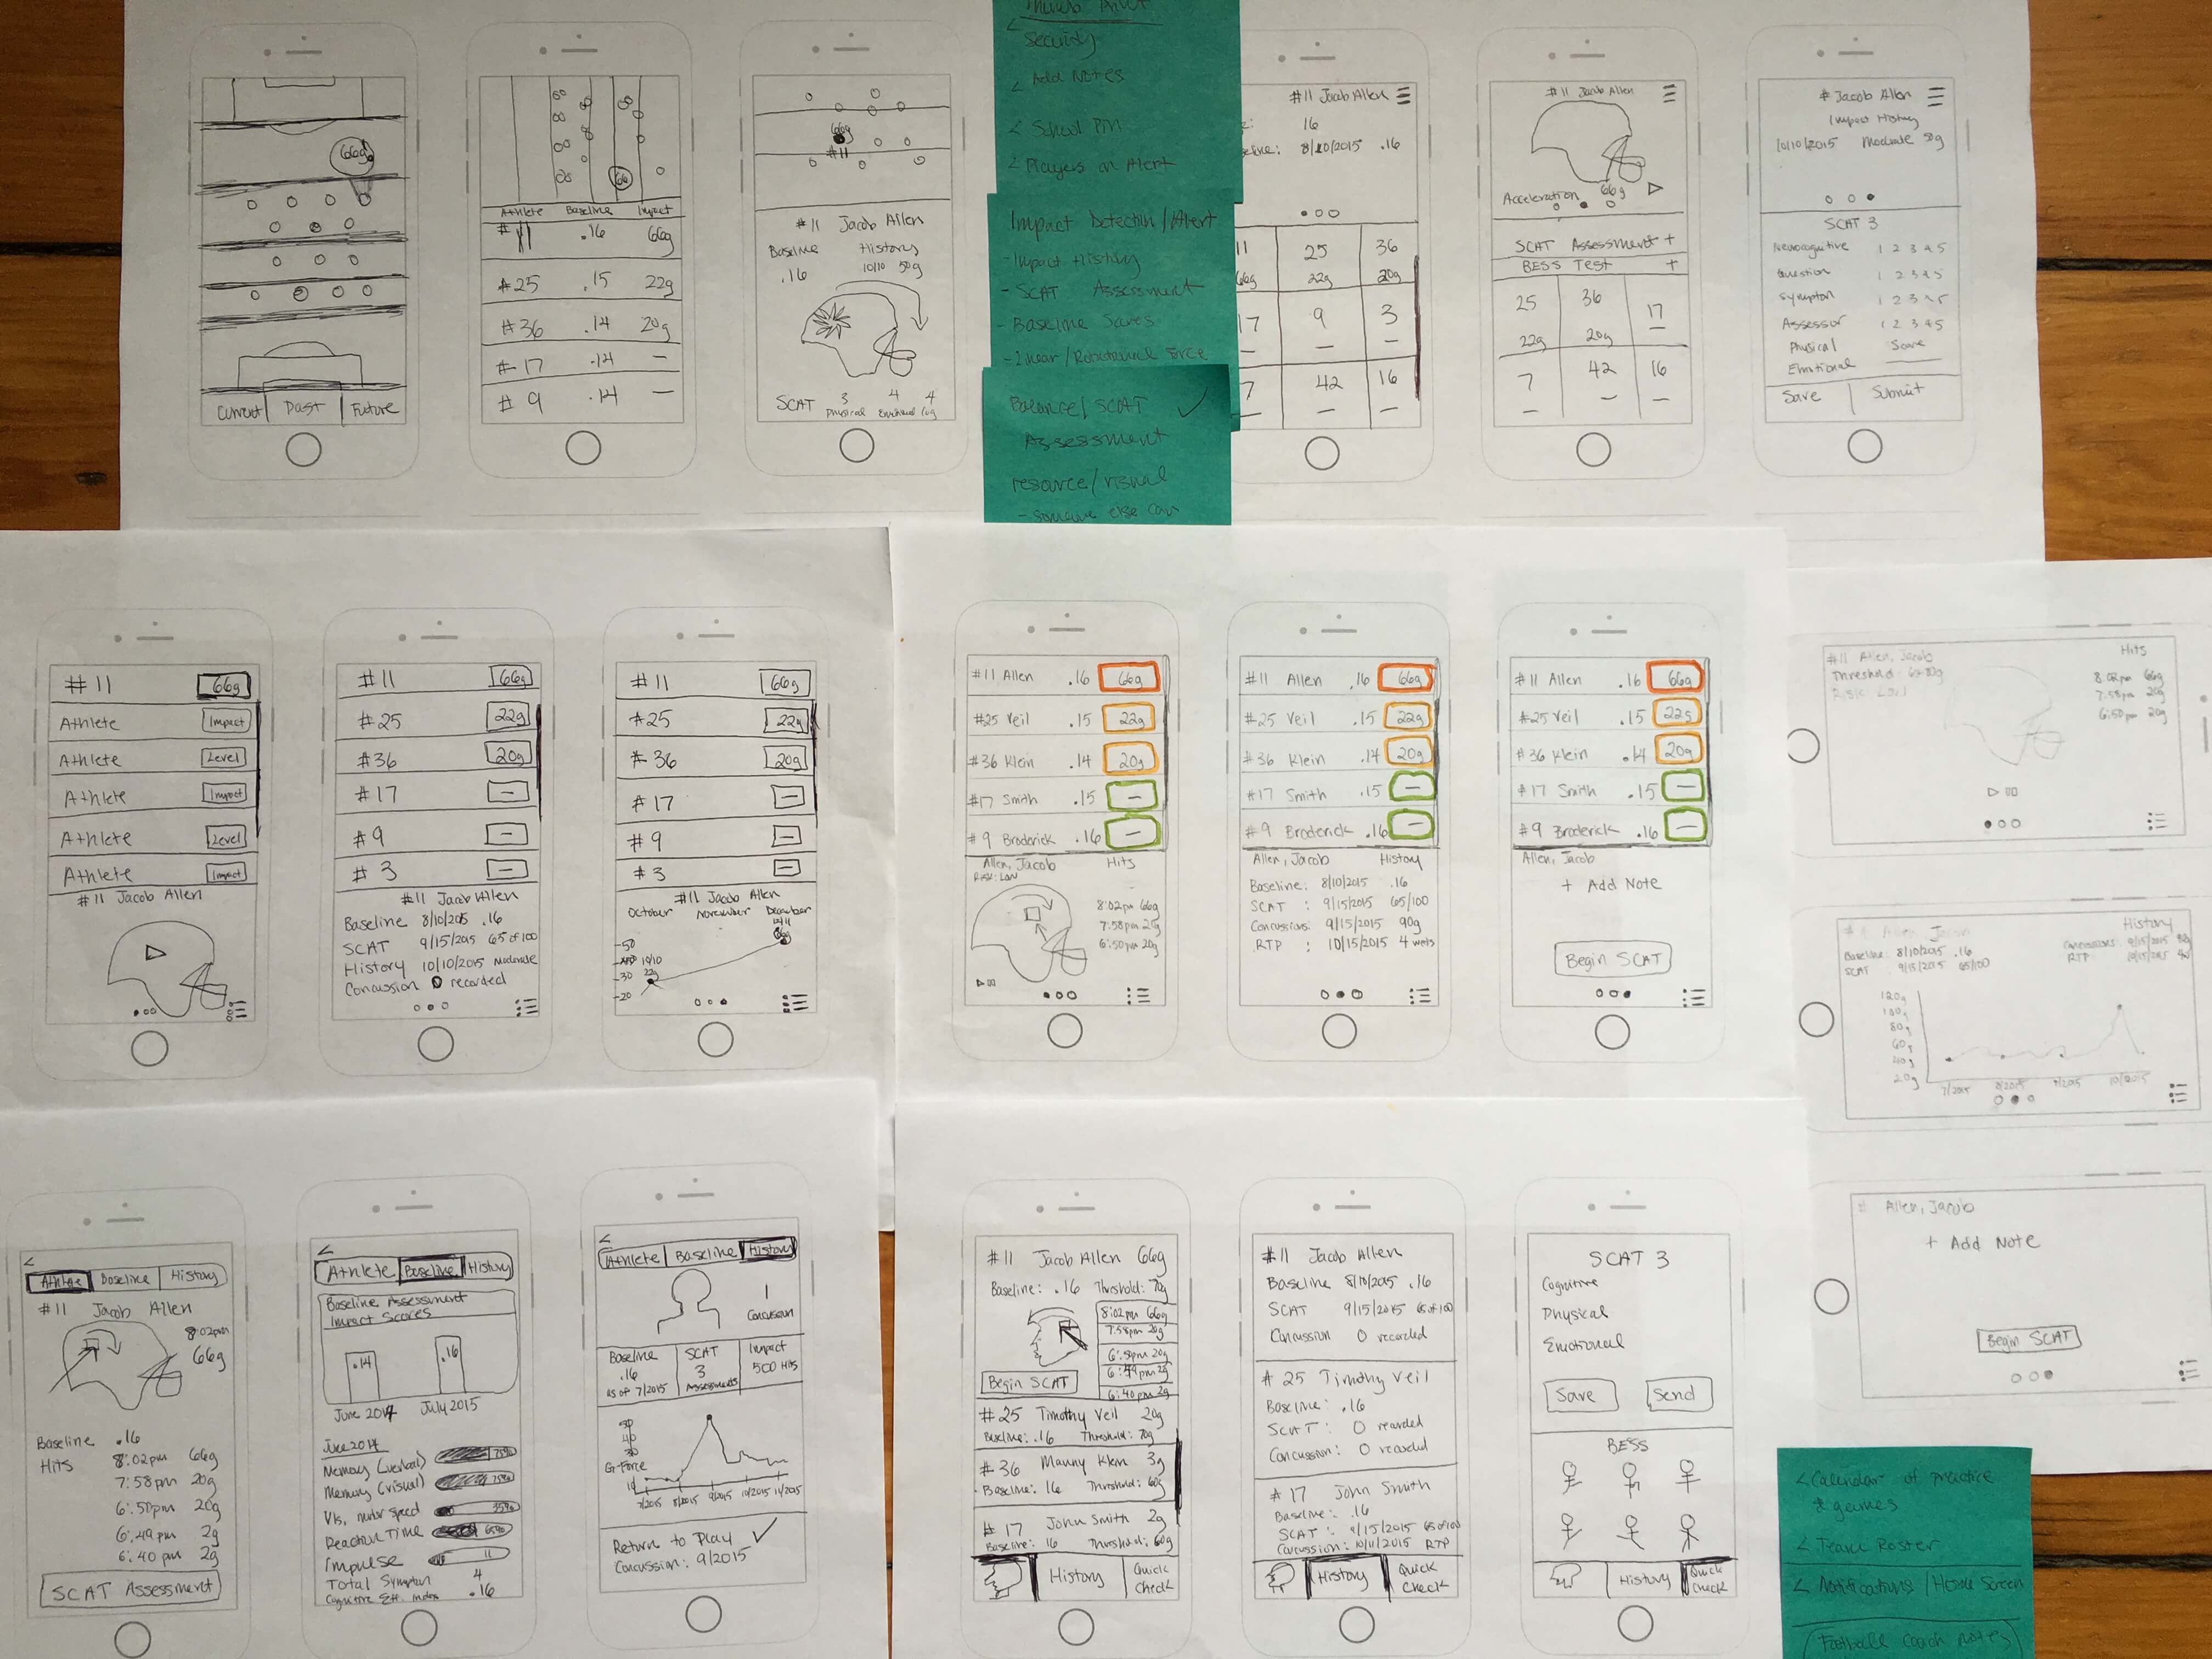 66g
Current Past Future
Athlete Baseline Impact
66
#11 .16 66g
#25 .15 22g
#36 .14 20g
#17 .14 —
#9 .14 —
66g
#11
#11 Jacob Allen
Baseline History
.16 10/10 50g
SCAT 3 4 4
Physical Emotional Cog
Security
< Add Notes
< School
< Players on Alert
Impact Detection/Alert
- Impact History
- SCAT Assessment
- Baseline Scores
- Linear/Rotational Force
Balance/SCAT ✓
Assessment
resource/visual
- someone else can
#11 Jacob Allen
16
8/10/2015 .16
11 25 36
66g 22g 20g
17 9 3
— — —
7 42 16
— — —
#11 Jacob Allen
Acceleration 66g
SCAT Assessment +
BESS Test +
25 36 17
22g 20g —
7 42 16
— — —
# Jacob Allen
Impact History
10/10/2015 Moderate 50g
SCAT 3
Neurocognitive 1 2 3 4 5
Question 1 2 3 4 5
Symptom 1 2 3 4 5
Assessor 1 2 3 4 5
Physical Score
Emotional
Save Submit
#11 66g
Athlete Impact
Athlete Level
Athlete Impact
Athlete Level
Athlete Impact
#11 Jacob Allen
#11 66g
#25 22g
#36 20g
#17 —
#9 —
#3 —
#11 Jacob Allen
Baseline 8/10/2015 .16
SCAT 9/15/2015 65 of 100
History 10/10/2015 Moderate
Concussion 0 recorded
#11 66g
#25 22g
#36 20g
#17 —
#9 —
#3 —
#11 Jacob Allen
October November December
12/11
66g
-50
10/10
-30 22g
-20
#11 Allen .16 66g
#25 Veil .15 22g
#36 Klein .14 20g
#17 Smith .15 —
#9 Broderick .16 —
Allen, Jacob Hits
Risk: Low
8:02pm 66g
7:58pm 20g
6:50pm 20g
#11 Allen .16 66g
#25 Veil .15 22g
#36 Klein .14 20g
#17 Smith .15 —
#9 Broderick .16 —
Allen, Jacob History
Baseline: 8/10/2015 .16
SCAT : 9/15/2015 65/100
Concussion: 9/15/2015 90g
RTP : 10/15/2015 4 weeks
#11 Allen .16 66g
#25 Veil .15 22g
#36 Klein .14 20g
#17 Smith .15 —
#9 Broderick .16 —
Allen, Jacob
+ Add Note
Begin SCAT
#11 Allen, Jacob Hits
Threshold: 80g
Risk: Low
8:02pm 66g
7:58pm 20g
6:50pm 20g
History
Baseline: 8/10/2015 .16
SCAT 9/15/2015 65/100
Concussions: 9/15/2015
RTP: 10/15/2015
120g
100g
80g
60g
40g
20g
7/2015 8/2015 9/2015 10/2015
# Allen, Jacob
+ Add Note
Begin SCAT
<
Athlete Baseline History
#11 Jacob Allen
8:02pm
66g
Baseline .16
Hits 8:02pm 66g
7:58pm 20g
6:50pm 20g
6:49pm 2g
6:40pm 2g
SCAT Assessment
<
Athlete Baseline History
Baseline Assessment
Impact Scores
.14 .16
June 2014 July 2015
June 2014
Memory (verbal) 75%
Memory (visual) 75%
Vis. motor speed 35%
Reaction Time 65%
Impulse 11
Total Symptom 4
Cognitive Eff. Index .16
<
Athlete Baseline History
1
Concussion
Baseline SCAT Impact
.16 3 500 Hits
as of 7/2015 Assessments
50
40
30
G-Force
10
7/2015 8/2015 9/2015 10/2015 11/2015
Return to Play ✓
Concussion: 9/2015
#11 Jacob Allen 66g
Baseline: .16 Threshold: 70g
8:02pm 66g
7:58pm 20g
6:50pm 20g
6:49pm 2g
6:40pm 2g
Begin SCAT
#25 Timothy Veil 20g
Baseline: .16 Threshold: 70g
#36 Manny Klein 3g
Baseline: 16 Threshold: 60g
#17 John Smith 2g
Baseline: 16 Threshold: 60g
History Quick Check
#11 Jacob Allen
Baseline 8/10/2015 .16
SCAT 9/15/2015 65 of 100
Concussion 0 recorded
#25 Timothy Veil
Baseline: .16
SCAT: 0 recorded
Concussion: 0 recorded
#17 John Smith
Baseline: .16
SCAT: 9/15/2015 65 of 100
Concussion: 10/11/2015 RTP
History Quick Check
SCAT 3
Cognitive
Physical
Emotional
Save Send
BESS
History Quick Check
< Calendar of practice
& games
< Team Roster
< Notifications/Home Screen
Football Coach Notes